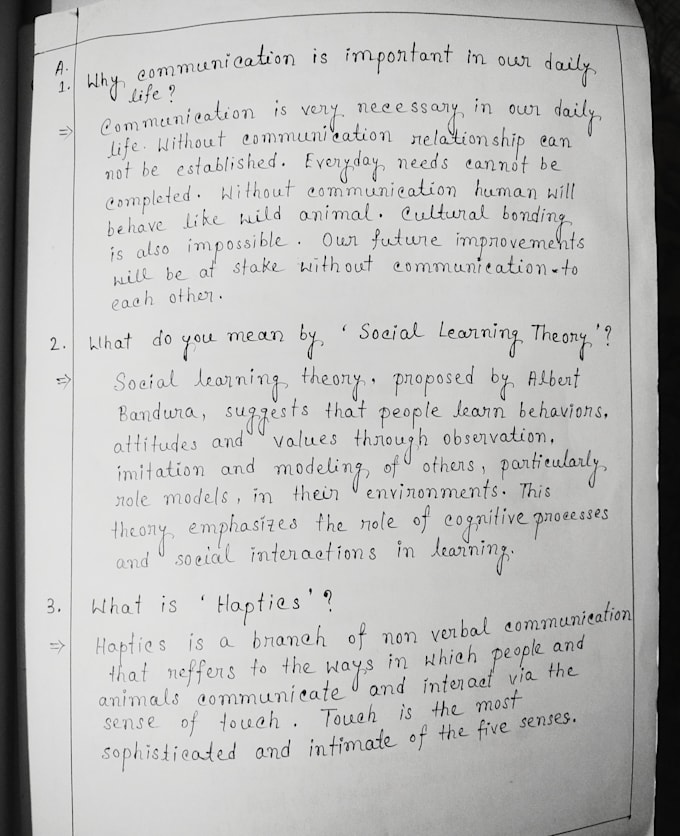 A.
1. Why communication is important in our daily
life?
⇒ Communication is very necessary in our daily
life. Without communication relationship can
not be established. Everyday needs cannot be
completed. Without communication human will
behave like wild animal. Cultural bonding
is also impossible. Our future improvements
will be at stake without communication to
each other.
2. What do you mean by 'Social Learning Theory'?
⇒ Social learning theory, proposed by Albert
Bandura, suggests that people learn behaviors,
attitudes and values through observation,
imitation and modeling of others, particularly
role models, in their environments. This
theory emphasizes the role of cognitive processes
and social interactions in learning.
3. What is 'Haptics'?
⇒ Haptics is a branch of non verbal communication
that reffers to the ways in which people and
animals communicate and interact via the
sense of touch. Touch is the most
sophisticated and intimate of the five senses.